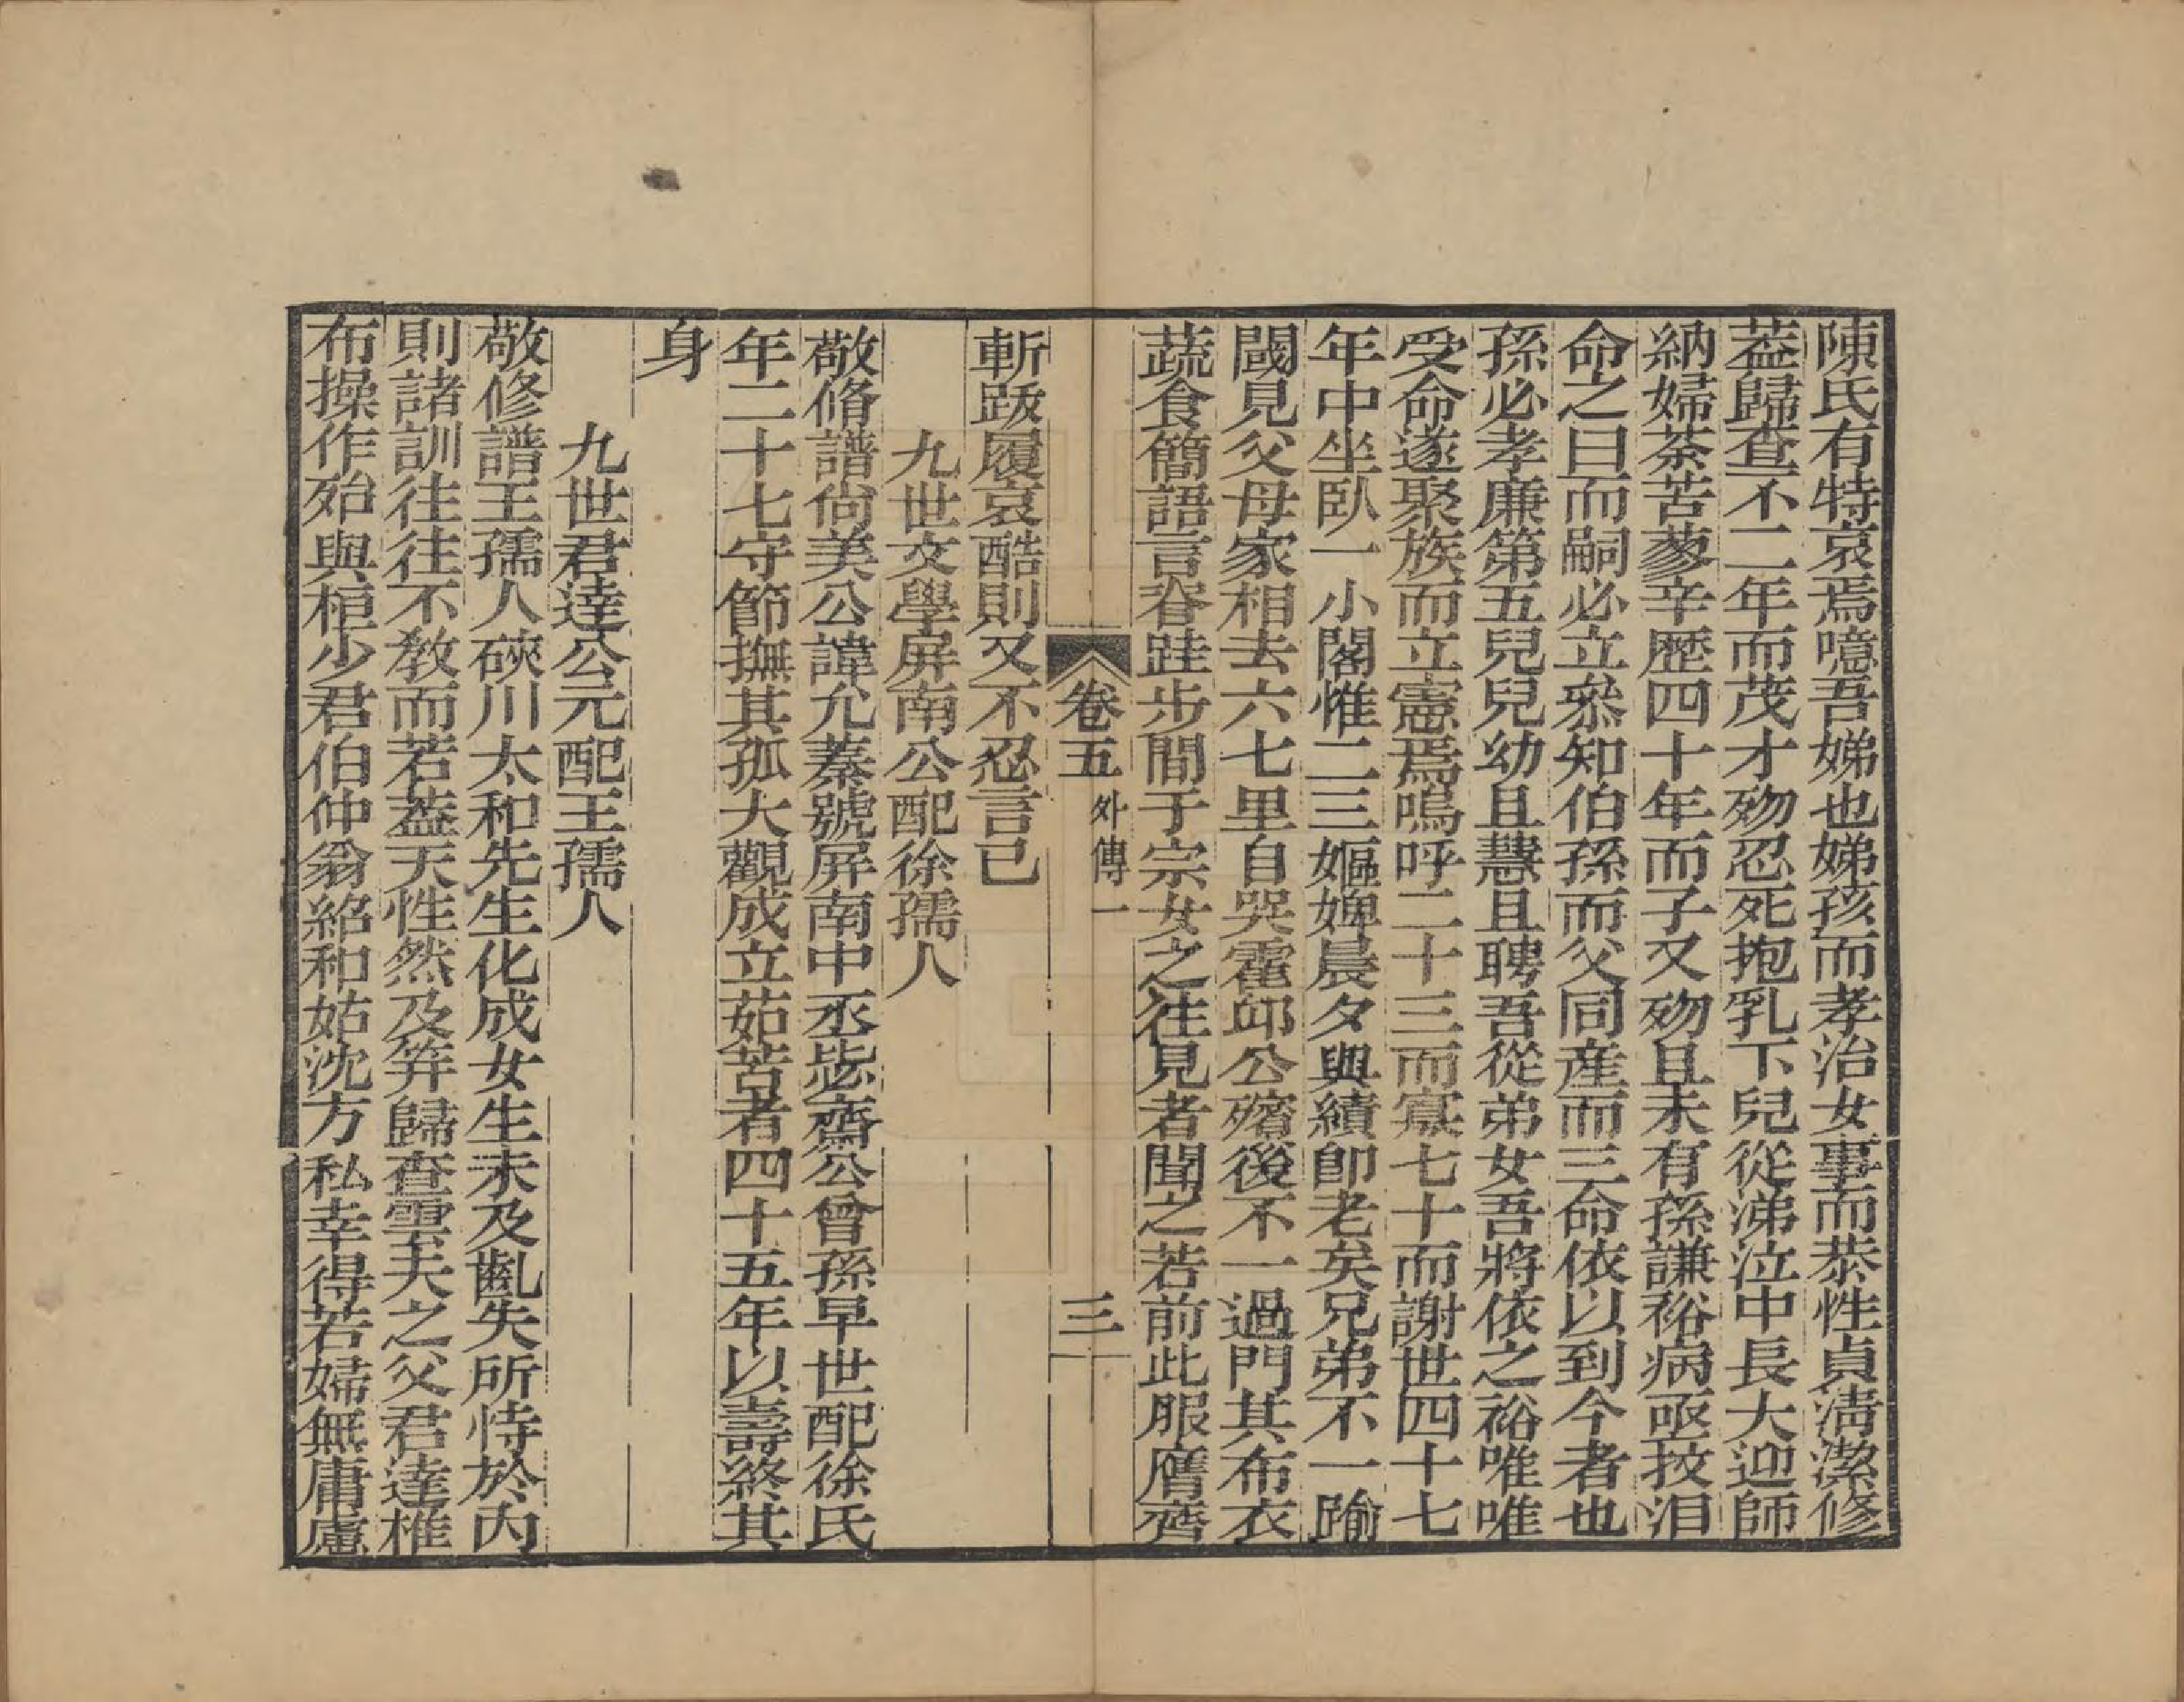 陳氏有特哀焉噫吾娣也娣孩而孝治女事而恭性貞淸潔修
葢歸查不二年而茂才歾忍死抱乳下兒從涕泣中長大迎師
納婦茶苦蓼辛歷四十年而子又歾且未有孫謙裕病亟抆泪
命之曰而嗣必立叅知伯孫而父同產而三命依以到今者也
孫必孝廉第五兒兒幼且慧且聘吾從弟女吾將依之裕唯唯
受命遂聚族而立憲焉嗚呼二十三而寡七十而謝世四十七
年中坐臥一小閣惟二三嫗婢晨夕與績卽老矣兄弟不一踰
閾見父母家相去六七里自哭霍邱公殯後不一過門其布衣
蔬食簡語言眘跬步間于宗女之往見者聞之若前此服膺齊
卷五 外傳一 三
斬踐履哀酷則又不忍言已
九世文學屏南公配徐孺人
敬脩譜尙美公諱允蓁號屏南中丞毖齋公曾孫早世配徐氏
年二十七守節撫其孤大觀成立茹苦者四十五年以壽終其
身
九世君達公元配王孺人
敬修譜王孺人硤川太和先生化成女生未及齔失所恃於內
則諸訓往往不敎而若葢天性然及筓歸查雲夫之父君達椎
布操作殆與桓少君伯仲翁紹和姑沈方私幸得若婦無庸慮